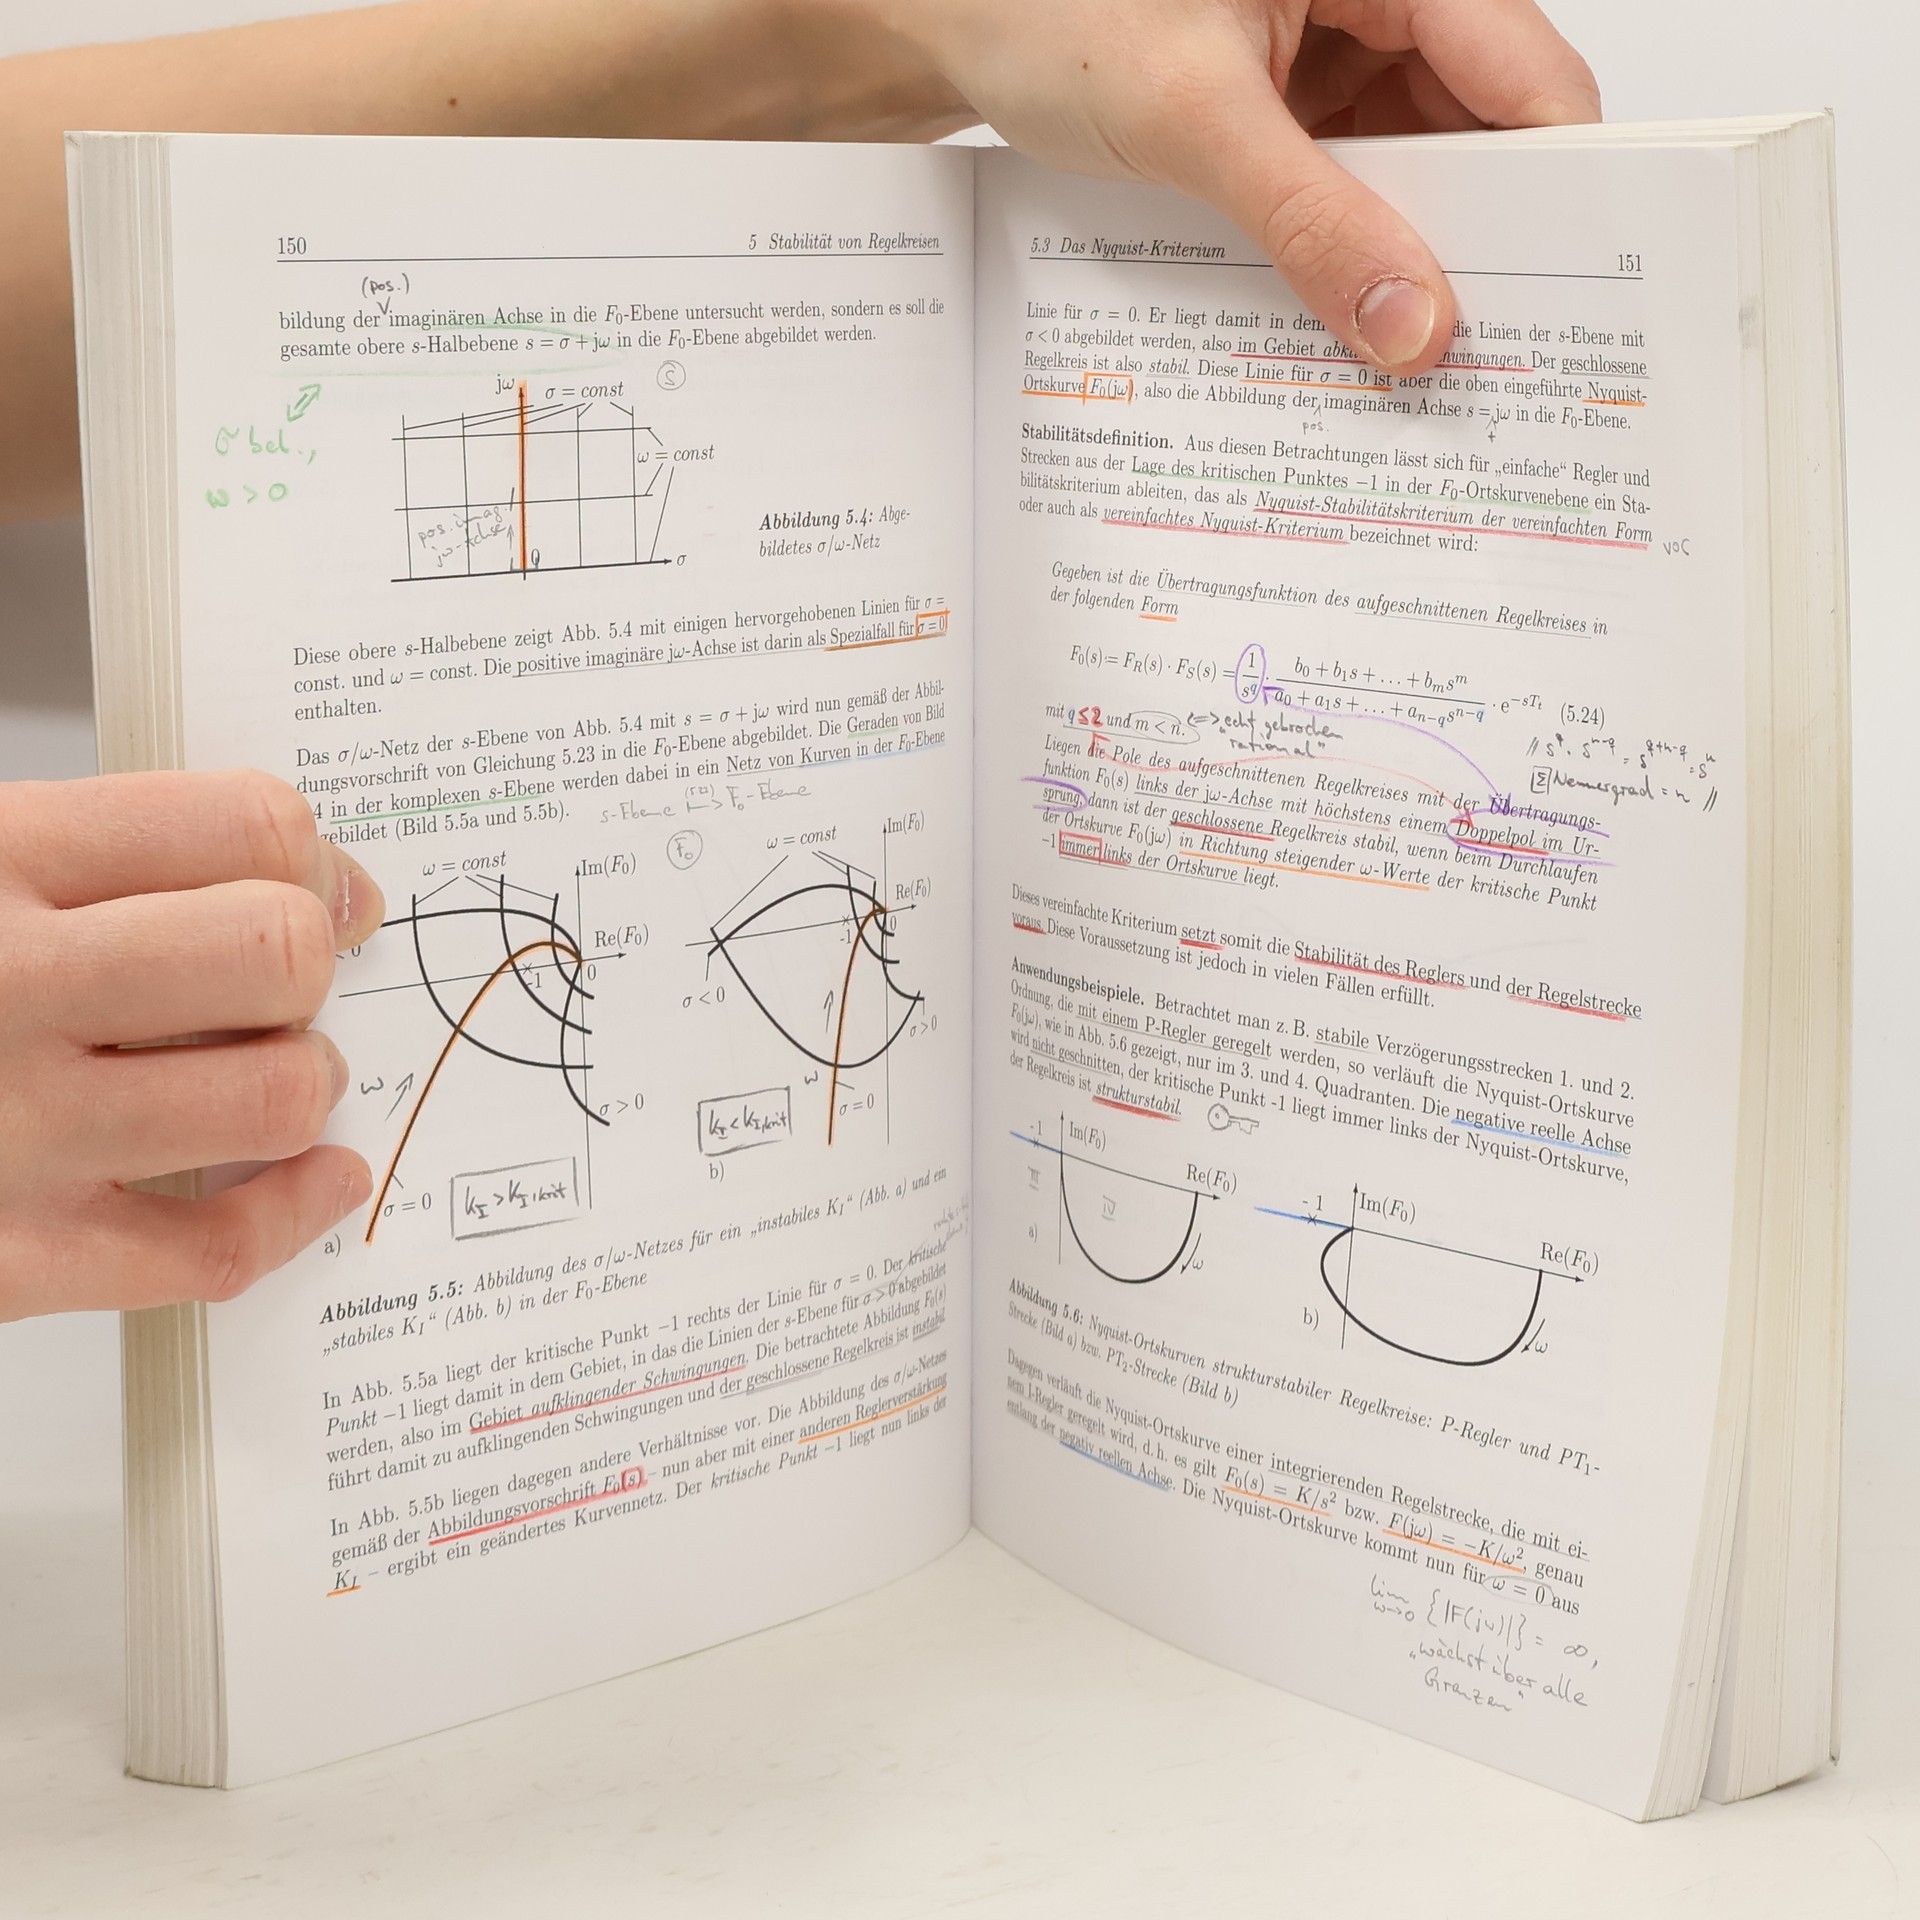 150 5 Stabilität von Regelkreisen
(pos.)
bildung der imaginären Achse in die F₀-Ebene untersucht werden, sondern es soll die
gesamte obere s-Halbebene s = σ + jω in die F₀-Ebene abgebildet werden.
σ bel.,
ω > 0
jω
σ = const
S
ω = const
pos. imag.
jω-Achse
0
σ
Abbildung 5.4: Abge-
bildetes σ/ω-Netz
Diese obere s-Halbebene zeigt Abb. 5.4 mit einigen hervorgehobenen Linien für σ =
const. und ω = const. Die positive imaginäre jω-Achse ist darin als Spezialfall für σ = 0
enthalten.
Das σ/ω-Netz der s-Ebene von Abb. 5.4 mit s = σ + jω wird nun gemäß der Abbil-
dungsvorschrift von Gleichung 5.23 in die F₀-Ebene abgebildet. Die Geraden von Bild
4 in der komplexen s-Ebene werden dabei in ein Netz von Kurven in der F₀-Ebene
gebildet (Bild 5.5a und 5.5b).
s-Ebene ↦ F₀-Ebene
F₀
ω = const
Im(F₀)
Re(F₀)
-1
0
ω
σ > 0
σ = 0
K_I > K_I,krit
a)
ω = const
Im(F₀)
Re(F₀)
-1
0
σ < 0
σ > 0
ω
σ = 0
K_I < K_I,krit
b)
Abbildung 5.5: Abbildung des σ/ω-Netzes für ein „instabiles K_I“ (Abb. a) und ein
„stabiles K_I“ (Abb. b) in der F₀-Ebene
In Abb. 5.5a liegt der kritische Punkt −1 rechts der Linie für σ = 0. Der kritische
Punkt −1 liegt damit in dem Gebiet, in das die Linien der s-Ebene für σ > 0 abgebildet
werden, also im Gebiet aufklingender Schwingungen. Die betrachtete Abbildung F₀(s)
führt damit zu aufklingenden Schwingungen und der geschlossene Regelkreis ist instabil.
In Abb. 5.5b liegen dagegen andere Verhältnisse vor. Die Abbildung des σ/ω-Netzes
gemäß der Abbildungsvorschrift F₀(s) – nun aber mit einer anderen Reglerverstärkung
K_I – ergibt ein geändertes Kurvennetz. Der kritische Punkt −1 liegt nun links der
5.3 Das Nyquist-Kriterium 151
Linie für σ = 0. Er liegt damit in dem die Linien der s-Ebene mit
σ < 0 abgebildet werden, also im Gebiet Der geschlossene
Regelkreis ist also stabil. Diese Linie für σ = 0 ist aber die oben eingeführte Nyquist-
Ortskurve F₀(jω), also die Abbildung der imaginären Achse s = jω in die F₀-Ebene.
pos. +
Stabilitätsdefinition. Aus diesen Betrachtungen lässt sich für „einfache“ Regler und
Strecken aus der Lage des kritischen Punktes −1 in der F₀-Ortskurvenebene ein Sta-
bilitätskriterium ableiten, das als Nyquist-Stabilitätskriterium der vereinfachten Form
oder auch als vereinfachtes Nyquist-Kriterium bezeichnet wird:
Gegeben ist die Übertragungsfunktion des aufgeschnittenen Regelkreises in
der folgenden Form
F₀(s) = F_R(s) · F_S(s) = 1/s^q · (b₀ + b₁s + … + b_m s^m)/(a₀ + a₁s + … + a_{n−q}s^{n−q}) · e^{−sT_t} (5.24)
mit q ≤ 2 und m < n. <=> „echt gebrochen
rational“
// s^q · s^{n-q} = s^{q+n-q} = s^n
Σ Nennergrad = n //
Liegen die Pole des aufgeschnittenen Regelkreises mit der Übertragungs-
funktion F₀(s) links der jω-Achse mit höchstens einem Doppelpol im Ur-
sprung, dann ist der geschlossene Regelkreis stabil, wenn beim Durchlaufen
der Ortskurve F₀(jω) in Richtung steigender ω-Werte der kritische Punkt
−1 immer links der Ortskurve liegt.
Dieses vereinfachte Kriterium setzt somit die Stabilität des Reglers und der Regelstrecke
voraus. Diese Voraussetzung ist jedoch in vielen Fällen erfüllt.
Anwendungsbeispiele. Betrachtet man z. B. stabile Verzögerungsstrecken 1. und 2.
Ordnung, die mit einem P-Regler geregelt werden, so verläuft die Nyquist-Ortskurve
F₀(jω), wie in Abb. 5.6 gezeigt, nur im 3. und 4. Quadranten. Die negative reelle Achse
wird nicht geschnitten, der kritische Punkt -1 liegt immer links der Nyquist-Ortskurve,
der Regelkreis ist strukturstabil.
- 1
Im(F₀)
Re(F₀)
III
IV
a)
ω
- 1
Im(F₀)
Re(F₀)
b)
ω
Abbildung 5.6: Nyquist-Ortskurven strukturstabiler Regelkreise: P-Regler und PT₁-
Strecke (Bild a) bzw. PT₂-Strecke (Bild b)
Dagegen verläuft die Nyquist-Ortskurve einer integrierenden Regelstrecke, die mit ei-
nem I-Regler geregelt wird, d. h. es gilt F₀(s) = K/s² bzw. F(jω) = −K/ω², genau
entlang der negativ reellen Achse. Die Nyquist-Ortskurve kommt nun für ω = 0 aus
lim ω→0 {|F(jω)|} = ∞,
„wächst über alle
Grenzen“